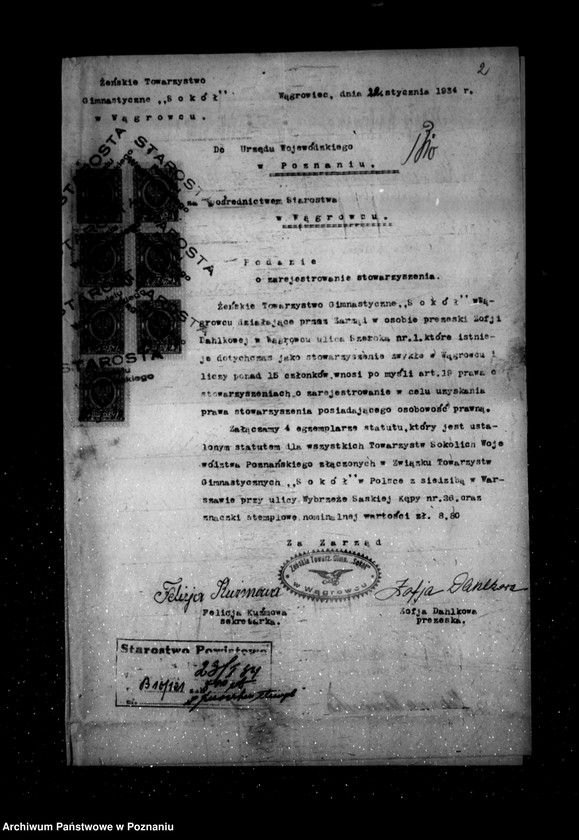 2
Żeńskie Towarzystwo
Gimnastyczne „Sokół”
w Wągrowcu.
Wągrowiec, dnia stycznia 1934 r.
Do Urzędu Wojewódzkiego
w Poznaniu.
za pośrednictwem Starostwa
w Wągrowcu.
STAROSTA
STAROSTA
STAROSTA
STAROSTA
Podanie
o zarejestrowanie stowarzyszenia.
Żeńskie Towarzystwo Gimnastyczne „Sokół” w Wą-
growcu działające przez Zarząd w osobie prezeski Zofji
Dahlkowej w Wągrowcu ulica Szeroka nr.1, które istnie-
je dotychczas jako stowarzyszenie zwykłe w Wągrowcu i
liczy ponad 15 członków, wnosi po myśli art.19 prawa o
stowarzyszeniach, o zarejestrowanie w celu uzyskania
prawa stowarzyszenia posiadającego osobowość prawną.
Załączamy 4 egzemplarze statutu, który jest usta-
lonym statutem dla wszystkich Towarzystw Sokolich Woje
wództwa Poznańskiego złączonych w Związku Towarzystw
Gimnastycznych „Sokół” w Polsce z siedzibą w War-
szawie przy ulicy Wybrzeże Saskiej Kępy nr.26. oraz
znaczki stemplowe nominalnej wartości zł. 8,80
Za Zarząd
Żeńskie Towarz. Gimn. "Sokół"
w Wągrowcu
Zofja Dahlkowa
Felicja Kuźmowa
sekretarka.
Zofja Dahlkowa
prezeska.
Starostwo Powiatowe
23/1 34
Archiwum Państwowe w Poznaniu